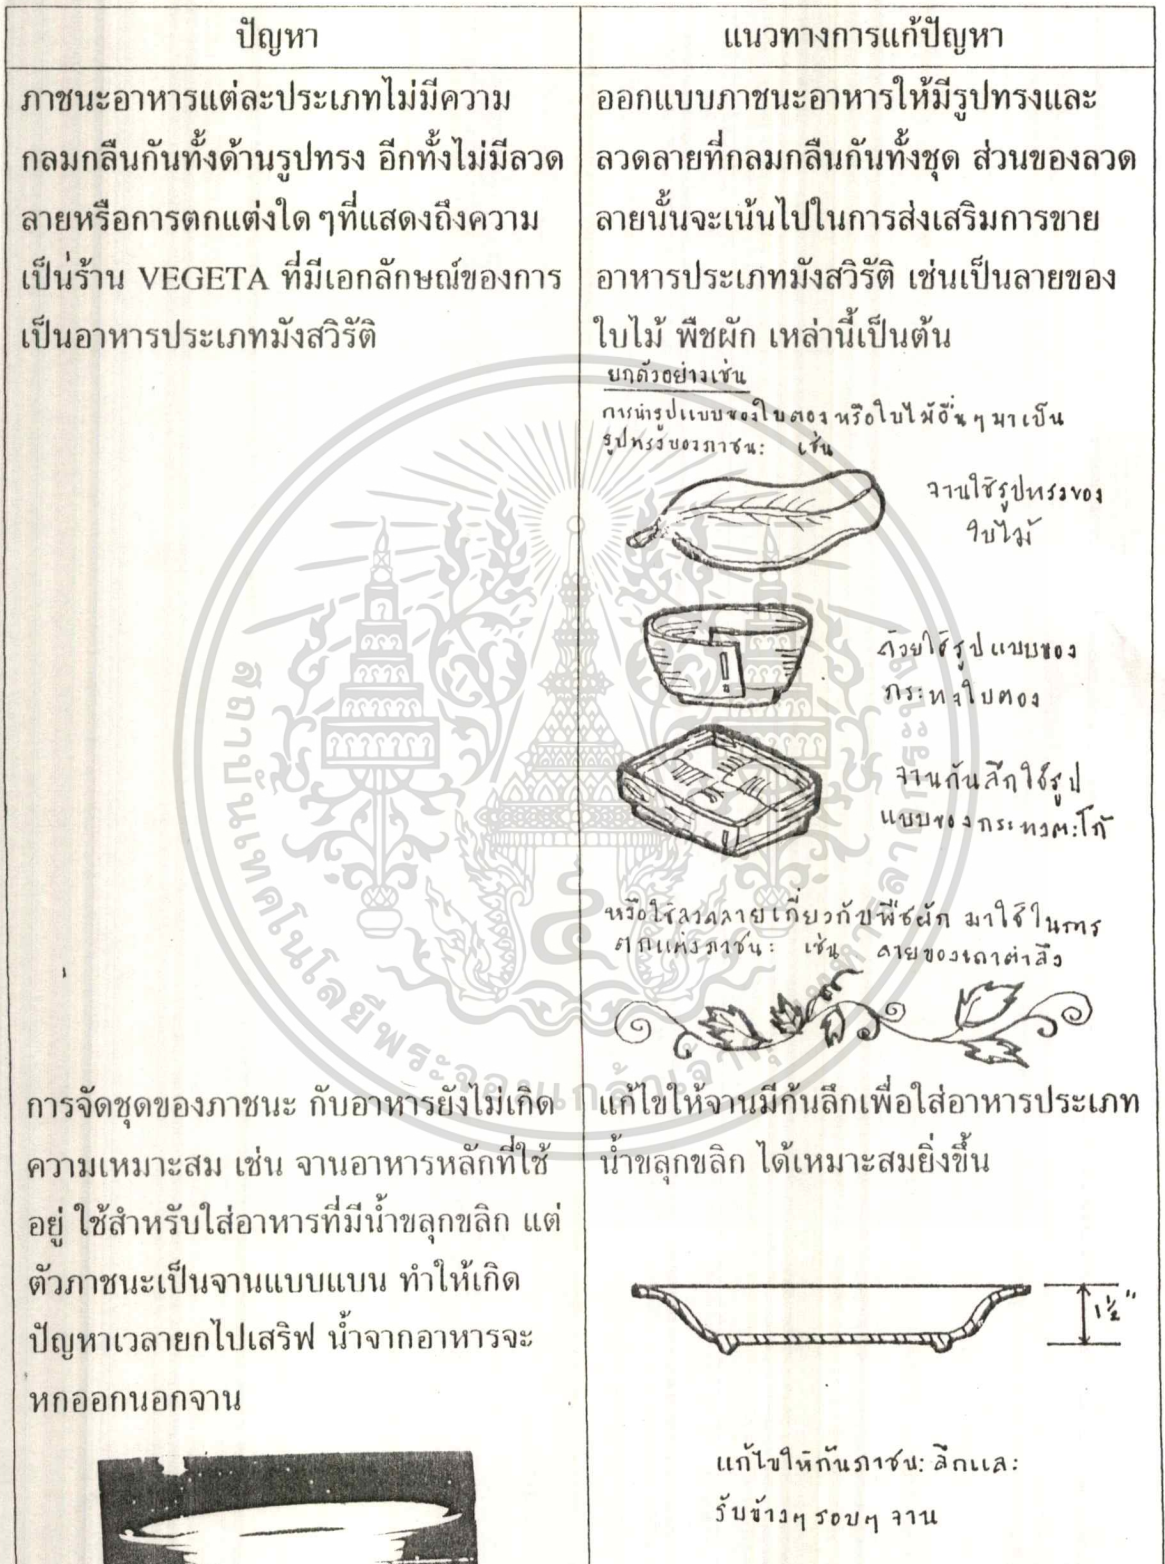 ปัญหา
แนวทางการแก้ปัญหา
ภาชนะอาหารแต่ละประเภทไม่มีความ
กลมกลืนกันทั้งด้านรูปทรง อีกทั้งไม่มีลวด
ลายหรือการตกแต่งใด ๆที่แสดงถึงความ
เป็นร้าน VEGETA ที่มีเอกลักษณ์ของการ
เป็นอาหารประเภทมังสวิรัติ
ออกแบบภาชนะอาหารให้มีรูปทรงและ
ลวดลายที่กลมกลืนกันทั้งชุด ส่วนของลวด
ลายนั้นจะเน้นไปในการส่งเสริมการขาย
อาหารประเภทมังสวิรัติ เช่นเป็นลายของ
ใบไม้ พืชผัก เหล่านี้เป็นต้น
ยกตัวอย่างเช่น
การนำรูปแบบของใบตอง หรือใบไม้อื่น ๆ มาเป็น
รูปทรงของภาชนะ เช่น
จานใช้รูปทรงของ
ใบไม้
ถ้วยใช้รูปแบบของ
กระทงใบตอง
จานก้นลึกใช้รูป
แบบของกระทงตะโก้
หรือใช้ลวดลายเกี่ยวกับพืชผัก มาใช้ในการ
ตกแต่งภาชนะ เช่น ลายของเถาตำลึง
การจัดชุดของภาชนะ กับอาหารยังไม่เกิด
ความเหมาะสม เช่น จานอาหารหลักที่ใช้
อยู่ ใช้สำหรับใส่อาหารที่มีน้ำขลุกขลิก แต่
ตัวภาชนะเป็นจานแบบแบน ทำให้เกิด
ปัญหาเวลายกไปเสริฟ น้ำจากอาหารจะ
หกออกนอกจาน
แก้ไขให้จานมีก้นลึกเพื่อใส่อาหารประเภท
น้ำขลุกขลิก ได้เหมาะสมยิ่งขึ้น
1½"
แก้ไขให้ก้นภาชนะลึกและ
รับข้างๆ รอบๆ จาน
สถาบันเทคโนโลยีพระจอมเกล้าเจ้าคุณทหารลาดกระบัง